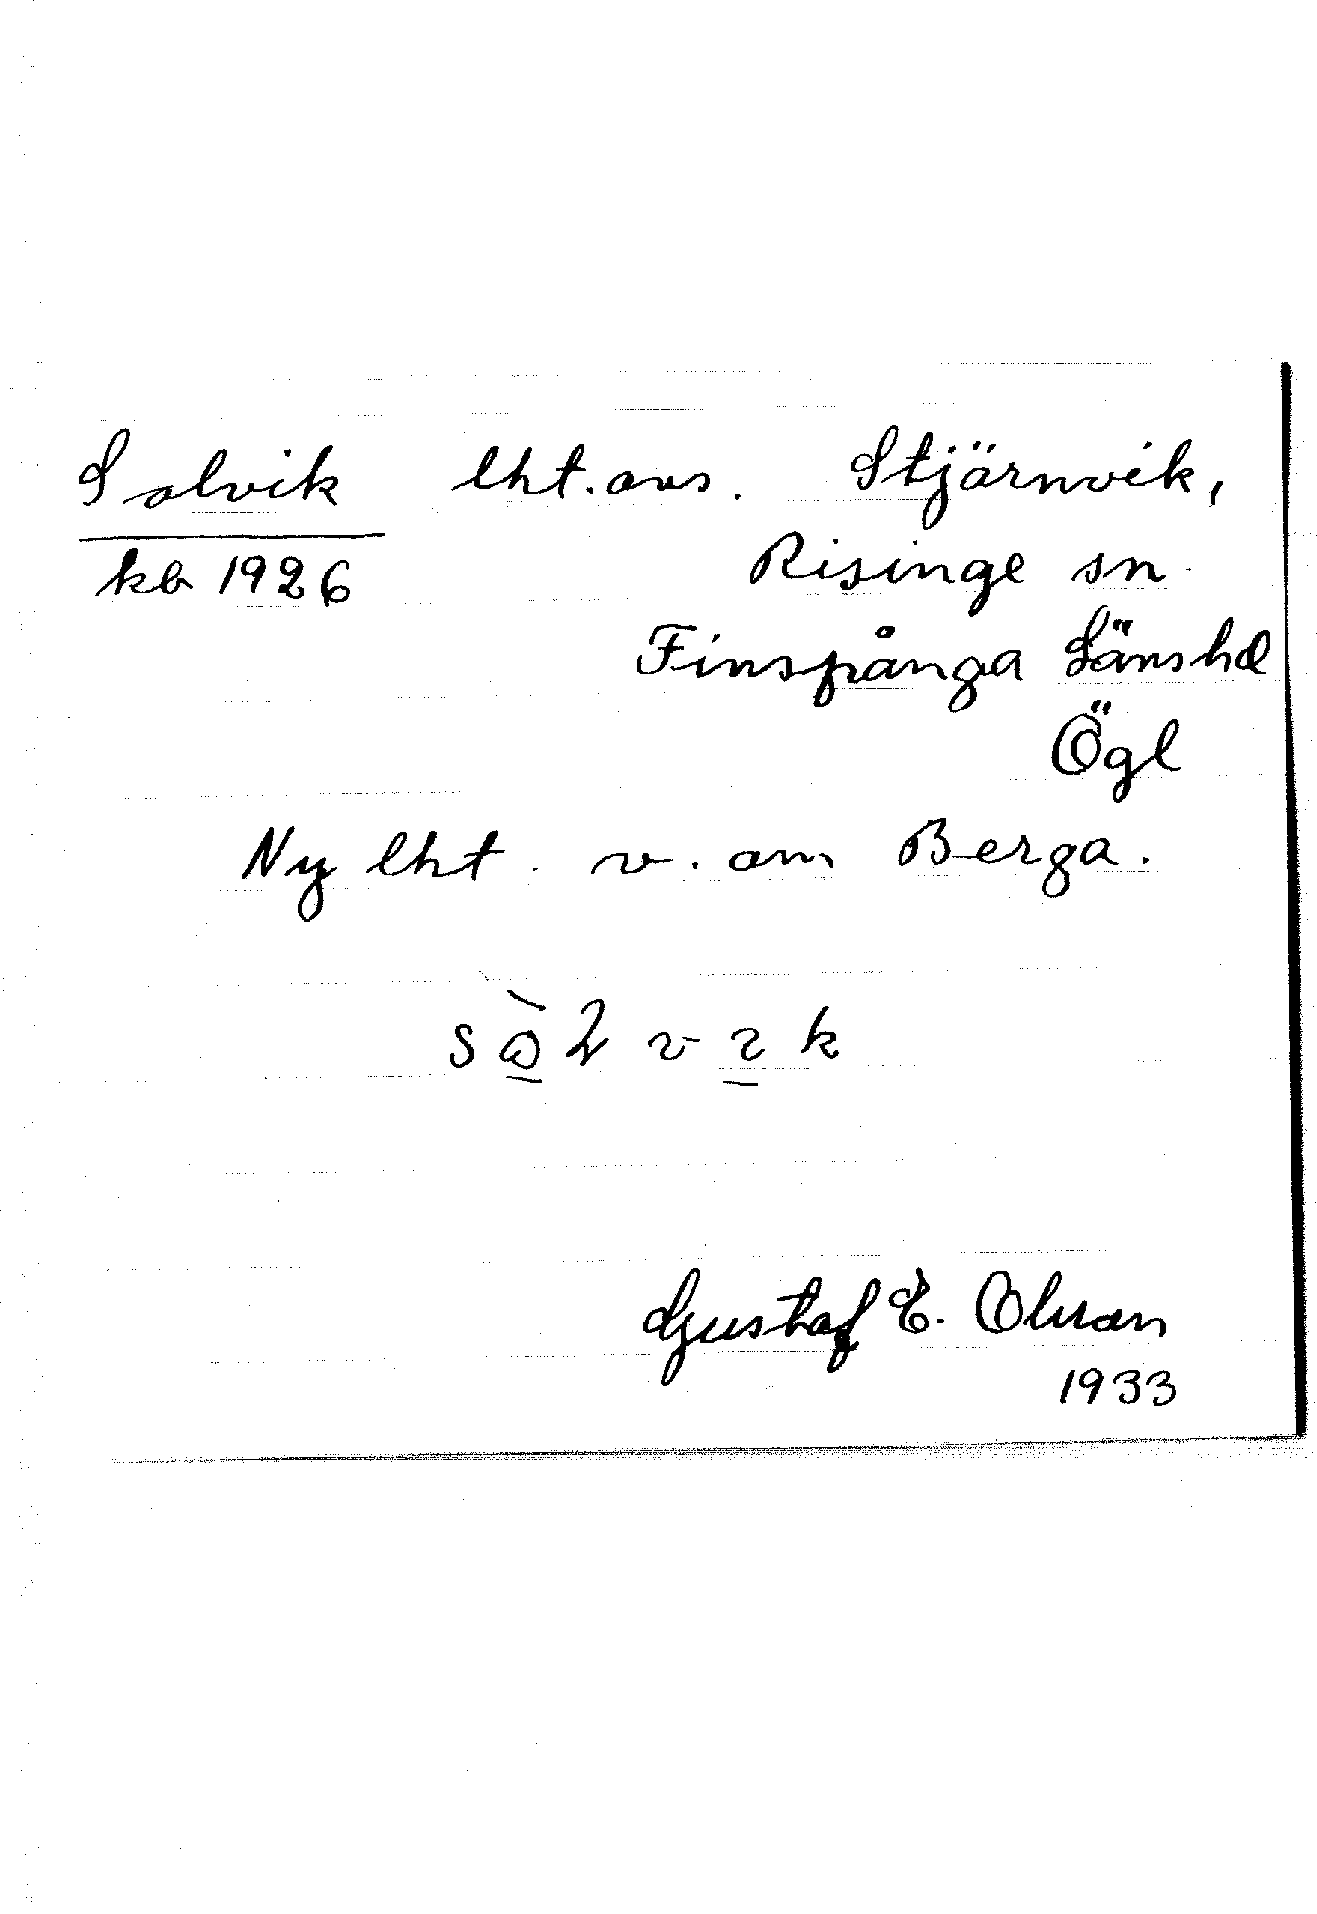 Solvik lht. avs. Stjärnvik,
kb 1926 Risinge sn
Finspånga Länshd
Ögl
Ny lht. v. om Berga.
Gustaf E.
1933